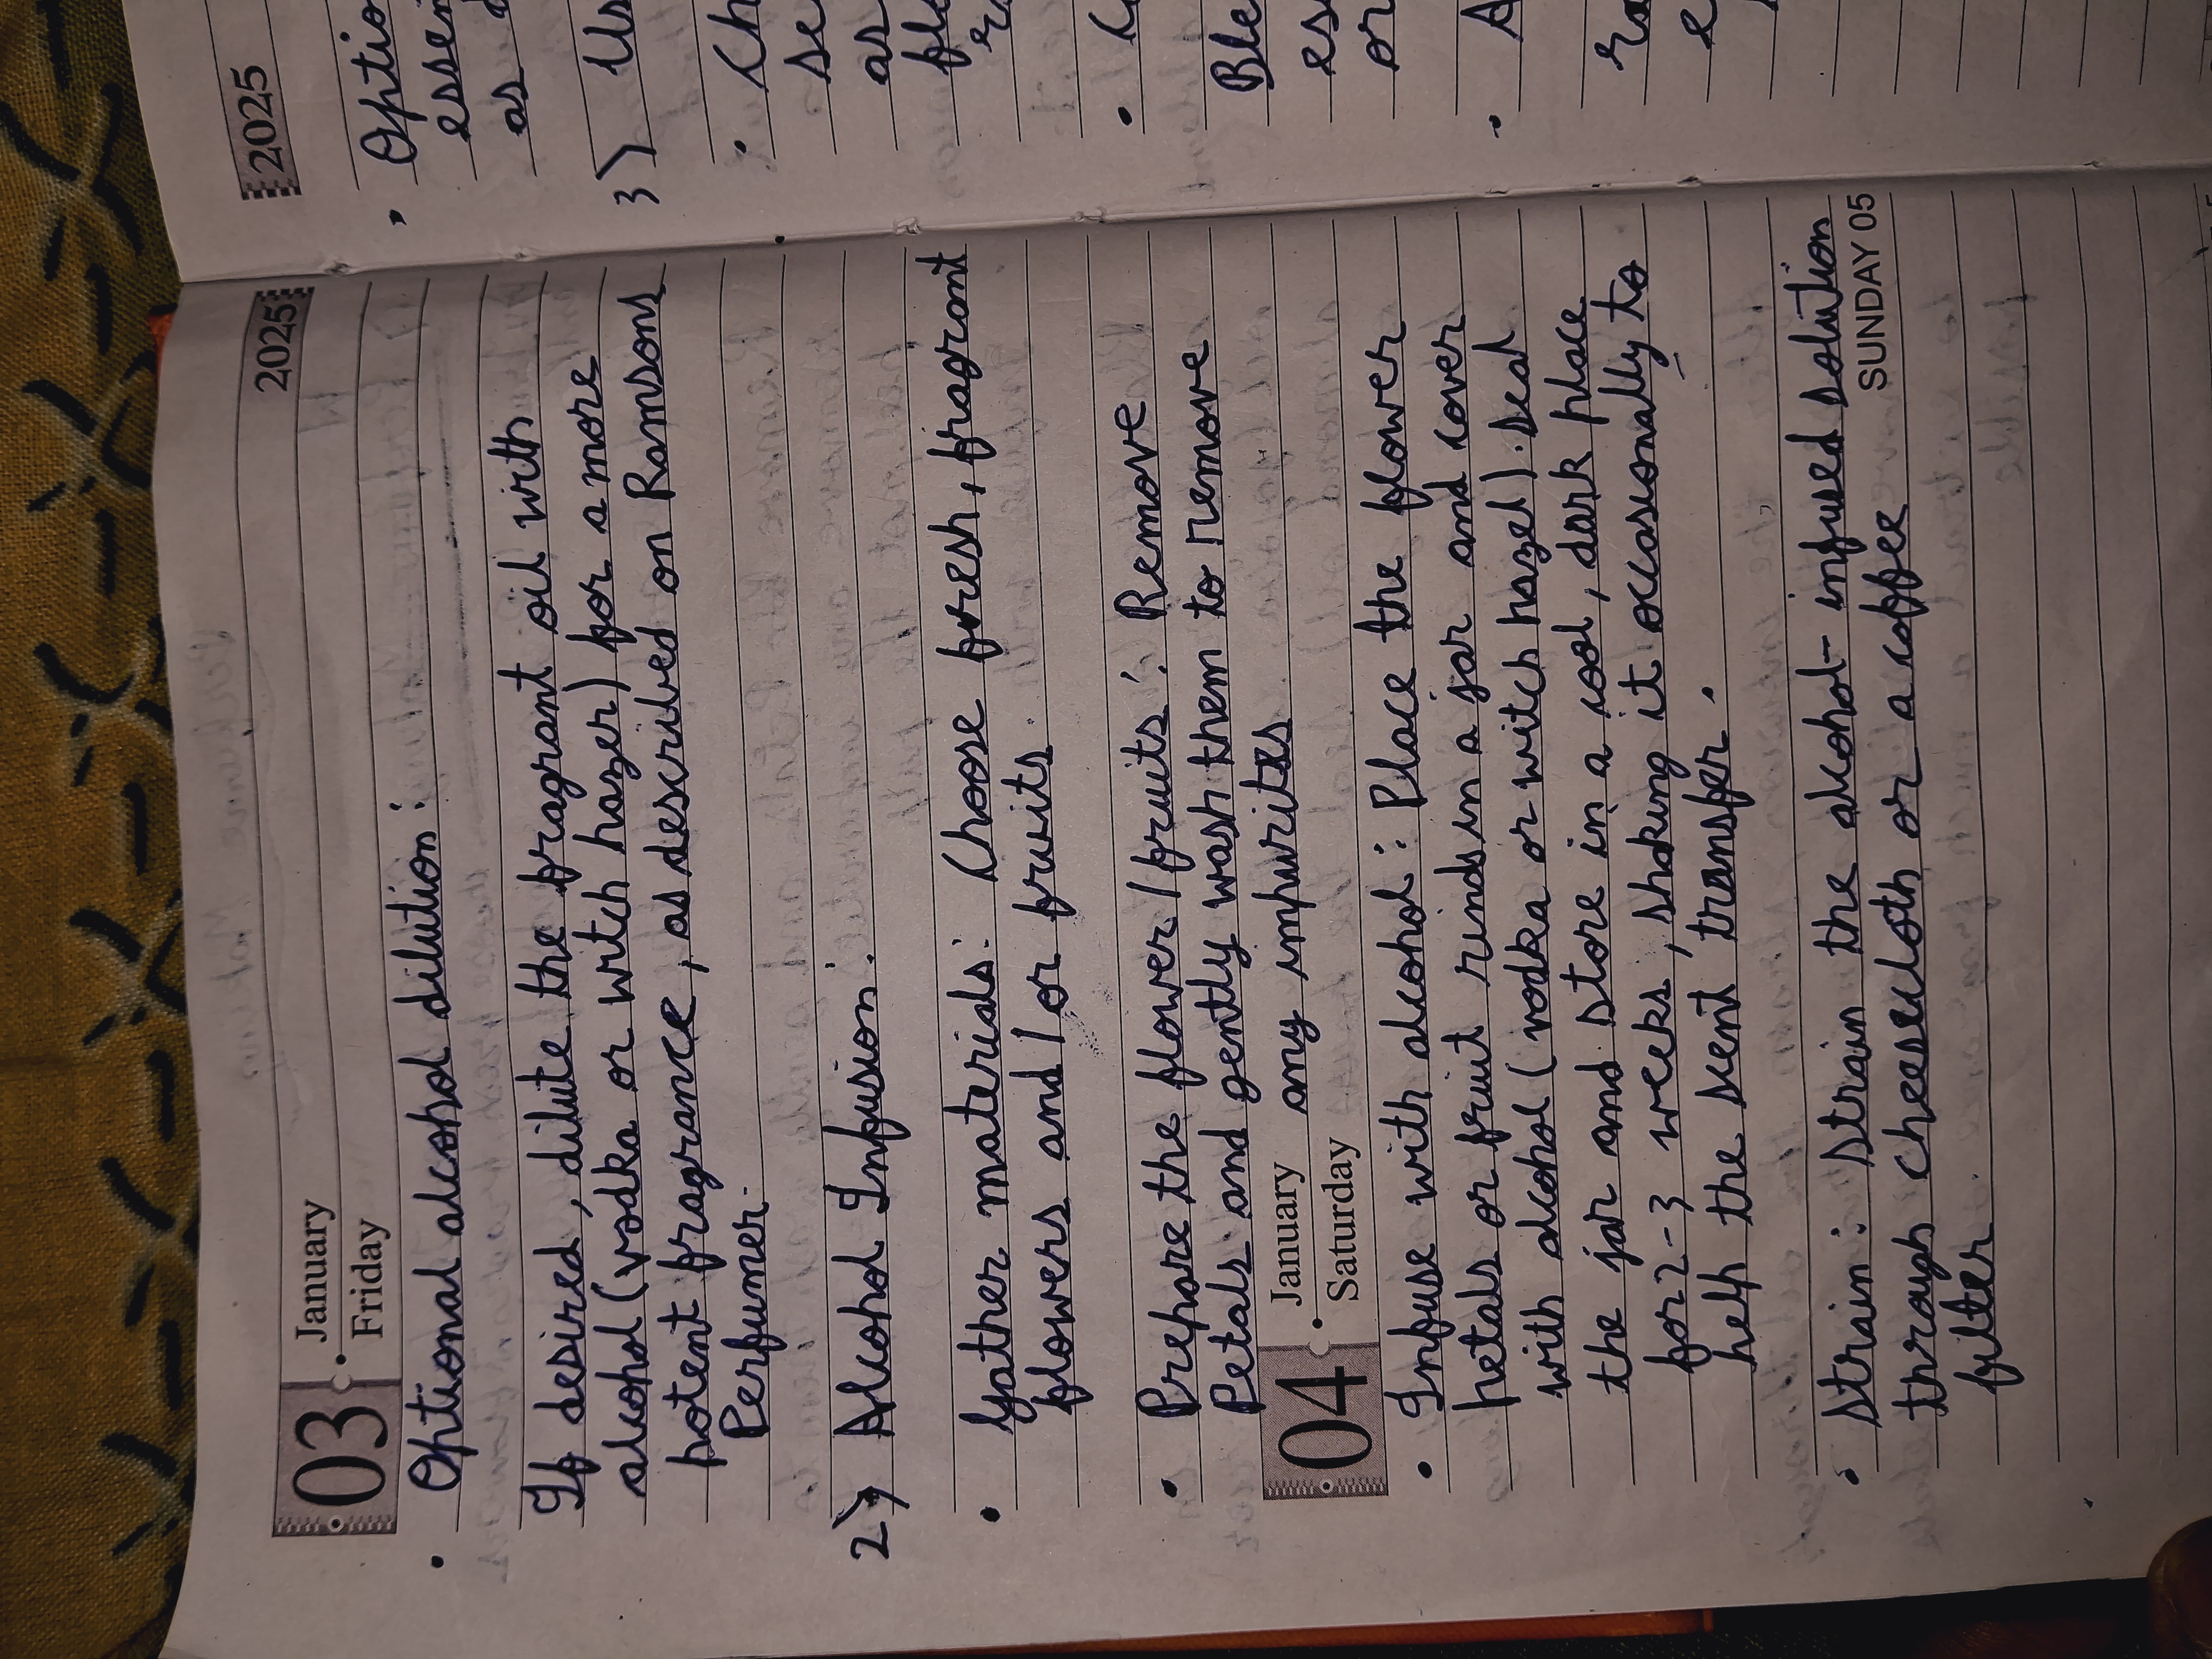 2025
03
January
Friday
• Optional alcohol dilution:
If desired, dilute the fragrant oil with
alcohol (vodka or witch hazer) for a more
potent fragrance, as described on Ramsons
Perfumer.
2) Alcohol Infusion:
• Gather materials: Choose fresh, fragrant
flowers and/or fruits.
• Prepare the flower/fruits: Remove
Petals and gently wash them to remove
any impurites
04
January
Saturday
• Infuse with alcohol: Place the flower
petals or fruit rinds in a jar and cover
with alcohol (vodka or witch hazel). Seal
the jar and store in a cool, dark place
for 2-3 weeks, shaking it occasionally to
help the scent transfer.
• Strain: Strain the alcohol-infused solution
SUNDAY 05
through cheesecloth or a coffee
filter
2025
• Optio
essen
as
3) Us
• Ch
se
as
flo
•
Ble
es
or
• A
ra
e